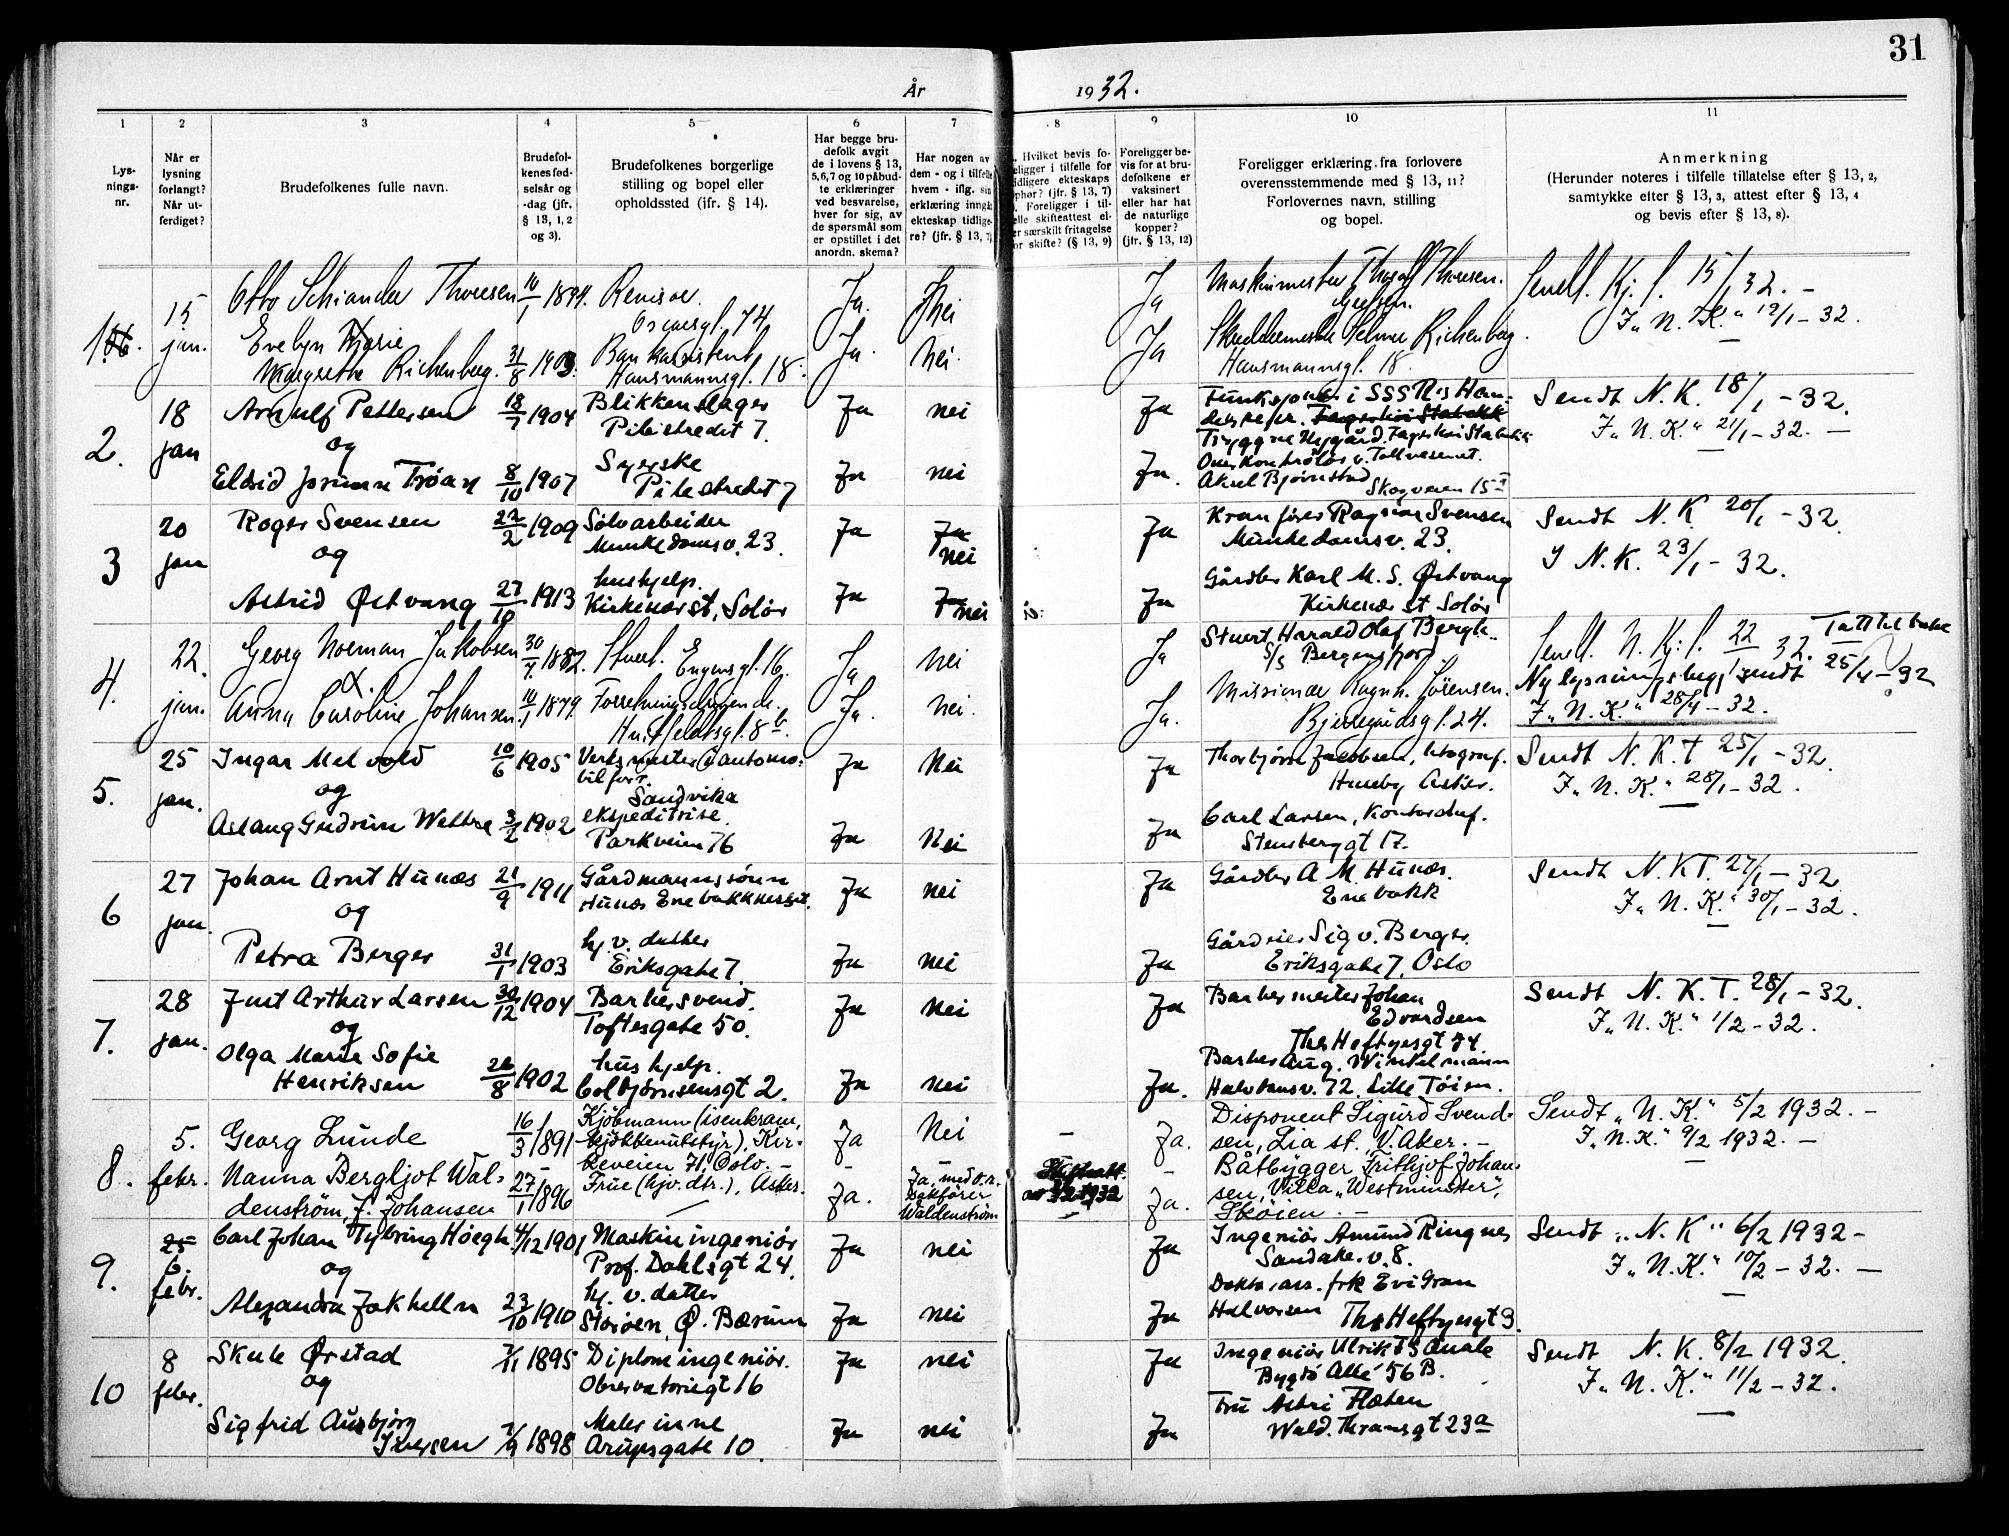 31
År 1932.
1 2 3 4 5 6 7 8 9 10 11
Lys-
nings-
nr.
Når er
lysning
forlangt?
Når ut-
ferdiget?
Brudefolkenes fulle navn.
Brudefol-
kenes fød-
selsår og
-dag (jfr.
§ 13, 1, 2
og 3).
Brudefolkenes borgerlige
stilling og bopel eller
opholdssted (ifr. § 14).
Har begge bru-
defolk avgit
de i lovens § 13,
5, 6, 7 og 10 påbud-
te erklæringer
ved besvarelse,
hver for sig, av
de spørsmål som
er opstillet i det
anordn. skema?
Har nogen av
dem - og i tilfelle
hvem - iflg. sin
erklæring inngått
ekteskap tidlige-
re? (jfr. § 13, 7)
Hvilket bevis fo-
religger i tilfelle for
tidligere ekteskaps
ophør? (jfr. § 13, 7)
Foreligger i til-
felle skifteattest el-
er særskilt fritagelse
for skifte? (§ 13, 9)
Foreligger be-
vis for at bru-
defolkene er
vaksinert
eller har hat
de naturlige
kopper?
(jfr. § 13, 12)
Foreligger erklæring fra forlovere
overensstemmende med § 13, 11?
Forlovernes navn, stilling
og bopel.
Anmerkning
(Herunder noteres i tilfelle tillatelse efter § 13, 2,
samtykke efter § 13, 3, attest efter § 13, 4
og bevis efter § 13, 8).
1. 15 jan. Otto Schiander Thoresen 10/1 1894. Revisor. Oscarsgt. 74 Ja. Nei Ja Maskinmester Thoresen. Sendt. Kj. f. 15/1 32. -
Evelyn Marie Margrethe Richenberg. 31/8 1903. Bankassistent Hausmannsgt. 18. Ja. Nei. Ja Skreddermester Selmer Richenberg. Hausmannsgt. 18. I "N. K." 19/1 - 32.
2. 18 jan Arnulf Pettersen 18/7 1904 Blikkenslager Pilestredet 7. Ja nei Ja Funksjonær i Sendt N. K. 18/1 - 32.
og Tryggve Nygård. I "N. K." 21/1 - 32. -
Eldrid Jorunn Trøan 8/10 1907 Syerske Pilestredet 7 Ja nei Ja. Overkontrollør v. Tollvesenet. Aksel Bjørnstad Skogveien 15
3 20 jan Roger Svensen 22/2 1909 Sølvarbeider Munkedamsv. 23. Ja Ja nei Ja Kranfører Ragnar Svensen Munkedamsv. 23. Sendt N. K. 20/1 - 32
og I N. K. 23/1 - 32.
Astrid Østvang 27/10 1913 hushjelp. Kirkenær st, Solør Ja Ja nei Ja Gårdbr Karl M. S. Østvang Kirkenær st Solør
4. 22. jan. Georg Norman Jakobsen 30/7 1882. Stuert. Engensgt. 16. Ja Nei Ja Stuert Harald Olaf Bergh.. S/S Bergensfjord Sendt. N. Kj. f. 22/1 32. Tatt tilbake
Anna Caroline Johansen. 10/1 1879. Forretningsdrivende. Huitfeldtsgt. 8 b. Ja. Nei. Ja. Missionær Ragnh. Sørensen. Bjerregårdsgt. 24. Ny lysningsbegj. sendt 25/4 - 32
I "N. K." 28/4 - 32.
5. 25 jan. Ingar Melvold 10/6 1905 Verksmester (i automobilforr. Sandvika Ja Nei Ja Thorbjørn Jacobsen, litograf. Huseby Asker. Sendt N. K. T 25/1 - 32.
og I "N. K." 28/1 - 32.
Aslaug Gudrun Wettre 3/2 1902 ekspeditrise. Parkveien 76 Ja Nei Ja Carl Larsen, Kontorchef. Stensberggt 17.
6 27 jan. Johan Arnt Hunæs 21/9 1911 Gårdmannssønn Hunæs Enebakkneset. Ja nei Ja Gårdbr A. M. Hunæs. Enebakk Sendt N. K T. 27/1 - 32
og I "N. K." 30/1 - 32.
Petra Berger 31/1 1903 hj. v. datter Eriksgate 7. Ja nei Ja Gårdeier Sigv. Berger. Eriksgate 7, Oslo
7. 28 jan. Just Arthur Larsen 30/12 1904 Barbersvend. Toftesgate 50. Ja nei Ja Barbermester Johan Edvardsen Ths Heftyesgt 44. Sendt N. K. T. 28/1 - 32.
og I "N. K." 1/2 - 32.
Olga Marie Sofie Henriksen 26/8 1902 hushjelp. Colbjørnsensgt 2. Ja nei Ja. Barber Aug. Winkelmann Halvdansv. 72. Lille Tøien.
8. 5. febr. Georg Lunde 16/3 1891 Kjøbmann (isenkram, kjøkkenutstyr), Kirkeveien 71, Oslo. - Ja Nei - Ja. Disponent Sigurd Svendsen, Lia st., V. Aker. - Sendt "N. K." 5/2 1932. -
Nanna Bergljot Waldenstrøm, f. Johansen 27/1 1896 Frue (hjv. dtr.), Asker. Ja. Ja, med o.r. sakfører Waldenstrøm Skifteatt. Ja. Båtbygger Frithjof Johansen, Villa "Westminster", Skøien. - I "N. K." 9/2 1932. -
9. 25 6. febr. Carl Johan Tybring Høegh 4/12 1901 Maskiningeniør Prof. Dahlsgt 24. Ja nei Ja Ingeniør Amund Ringnes Sandake. v. 8. Sendt "N. K" 6/2 1932 -
og I "N. K." 10/2 - 32. -
Alexandra Jakhelln 23/10 1910 hj. v. datter Storøen, Ø. Bærum Ja nei Ja Doktorass. frk Evi Gran Halvorsen Ths Heftyesgt 3.
10 8 febr. Skule Ørstad 7/11 1895 Diplomingeniør. Observatoriegt 16 Ja nei Ja Ingeniør Ulrik F. S Quale Bygdø Allé 56 B. Sendt N. K. 8/2 1932.
og I "N. K." 11/2 - 32.
Sigfrid Ausbjørg Iversen 7/9 1898 Malerinne Arupsgate 10. Ja nei Ja Fru Astri Flæten Wald. Thranesgt 23a